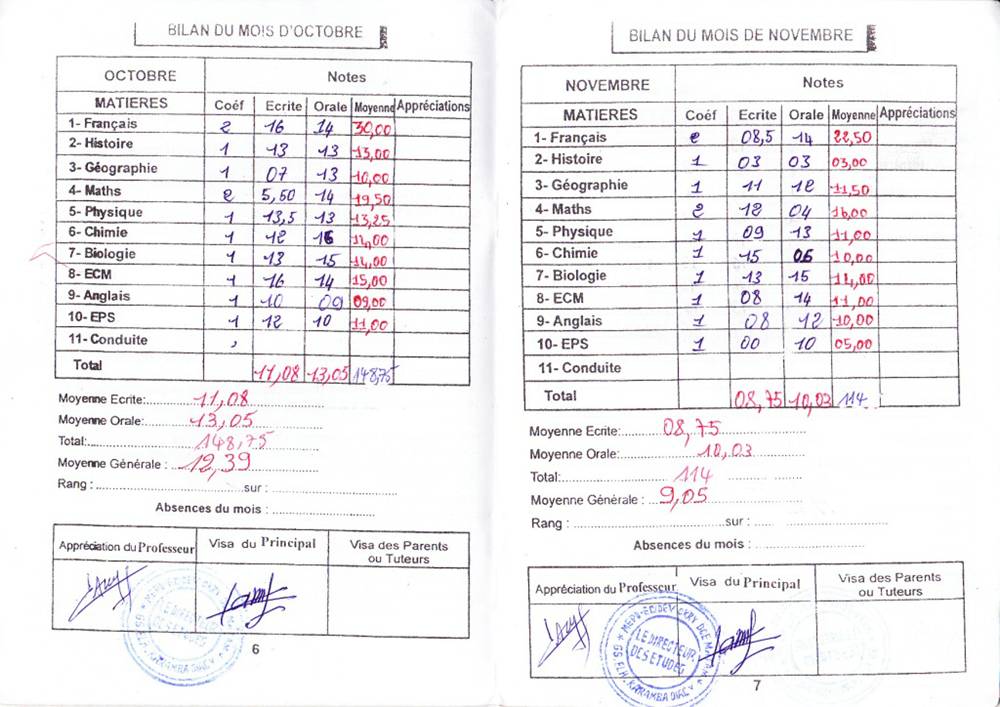 BILAN DU MOIS D'OCTOBRE
OCTOBRE Notes
MATIERES Coéf Ecrite Orale Moyenne Appréciations
1- Français 2 16 14 30,00
2- Histoire 1 13 13 13,00
3- Géographie 1 07 13 10,00
4- Maths 2 5,50 14 19,50
5- Physique 1 13,5 13 13,25
6- Chimie 1 12 16 14,00
7- Biologie 1 13 15 14,00
8- ECM 1 16 14 15,00
9- Anglais 1 10 09 09,00
10- EPS 1 12 10 11,00
11- Conduite
Total 11,08 13,05 148,75
Moyenne Ecrite: 11,08
Moyenne Orale: 13,05
Total: 148,75
Moyenne Générale : 12,39
Rang : sur :
Absences du mois :
Appréciation du Professeur Visa du Principal Visa des Parents
ou Tuteurs
6
BILAN DU MOIS DE NOVEMBRE
NOVEMBRE Notes
MATIERES Coéf Ecrite Orale Moyenne Appréciations
1- Français 2 08,5 14 22,50
2- Histoire 1 03 03 03,00
3- Géographie 1 11 12 11,50
4- Maths 2 12 04 16,00
5- Physique 1 09 13 11,00
6- Chimie 1 15 06 10,00
7- Biologie 1 13 15 14,00
8- ECM 1 08 14 11,00
9- Anglais 1 08 12 10,00
10- EPS 1 00 10 05,00
11- Conduite
Total 08,75 10,03 114
Moyenne Ecrite: 08,75
Moyenne Orale: 10,03
Total: 114
Moyenne Générale : 9,05
Rang : sur :
Absences du mois :
Appréciation du Professeur Visa du Principal Visa des Parents
ou Tuteurs
LE DIRECTEUR
DES ETUDES
7